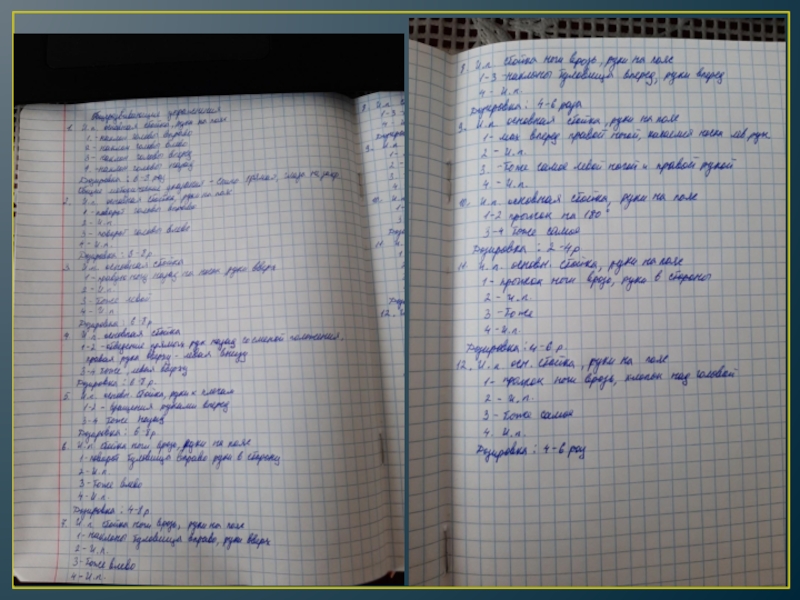 Общеразвивающие упражнения
1. И.п. основная стойка, руки на пояс
1 - наклон головы вправо
2 - наклон головы влево
3 - наклон головы вперед
4 - наклон головы назад
Дозировка: 6-8 раз
Общие методические указания - спина прямая,
2. И.п. основная стойка руки на пояс
1 - поворот головы вправо
2 - И.п.
3 - поворот головы влево
4 - И.п.
Дозировка: 6-8 р.
3. И.п. основная стойка
1 - правую ногу назад на носок руки вверх
2 - И.п.
3 - Тоже левой
4 - И.п.
Дозировка: 6-8 р.
4. И.п. основная стойка
1-2 - отведение прямых рук назад со сменой положения.
правая рука вверху - левая внизу
3-4 Тоже, левая вверху
Дозировка: 6-8 р.
5. И.п. основн. стойка, руки к плечам
1-2 - вращения руками вперед
3-4 Тоже назад
Дозировка: 6-8 р.
6. И.п. стойка ноги врозь, руки на пояс
1 - поворот туловища вправо руки в стороны
2 - И.п
3 - Тоже влево
4 - И.п.
Дозировка: 4-6 р
7. И.п. стойка ноги врозь, руки на пояс
1 - наклоны туловища вправо, руки вверх
2 - И.п.
3 - Тоже влево
4 - И.п.
8. И.п. стойка ноги врозь, руки на пояс
1-3 - наклоны туловища вперед, руки вперед
4 - И.п.
Дозировка: 4-6 раз
9. И.п. основная стойка, руки на пояс
1 - мах вперед правой ногой, касаемся носка лев. руки.
2 - И.п.
3 - Тоже самое левой ногой и правой рукой
4 - И.п.
10. И.п. основная стойка, руки на пояс
1-2 прыжок на 180°
3-4 Тоже самое
Дозировка: 2-4 р.
11. И.п. основн. стойка, руки на пояс
1 - прыжок ноги врозь, руки в стороны
2 - И.п.
3 - Тоже
4 - И.п.
Дозировка: 4-6 р.
12. И.п. осн. стойка, руки на пояс
1 - Прыжок ноги врозь, хлопок над головой
2 - И.п.
3 - Тоже самое
4. И.п.
Дозировка: 4-6 раз